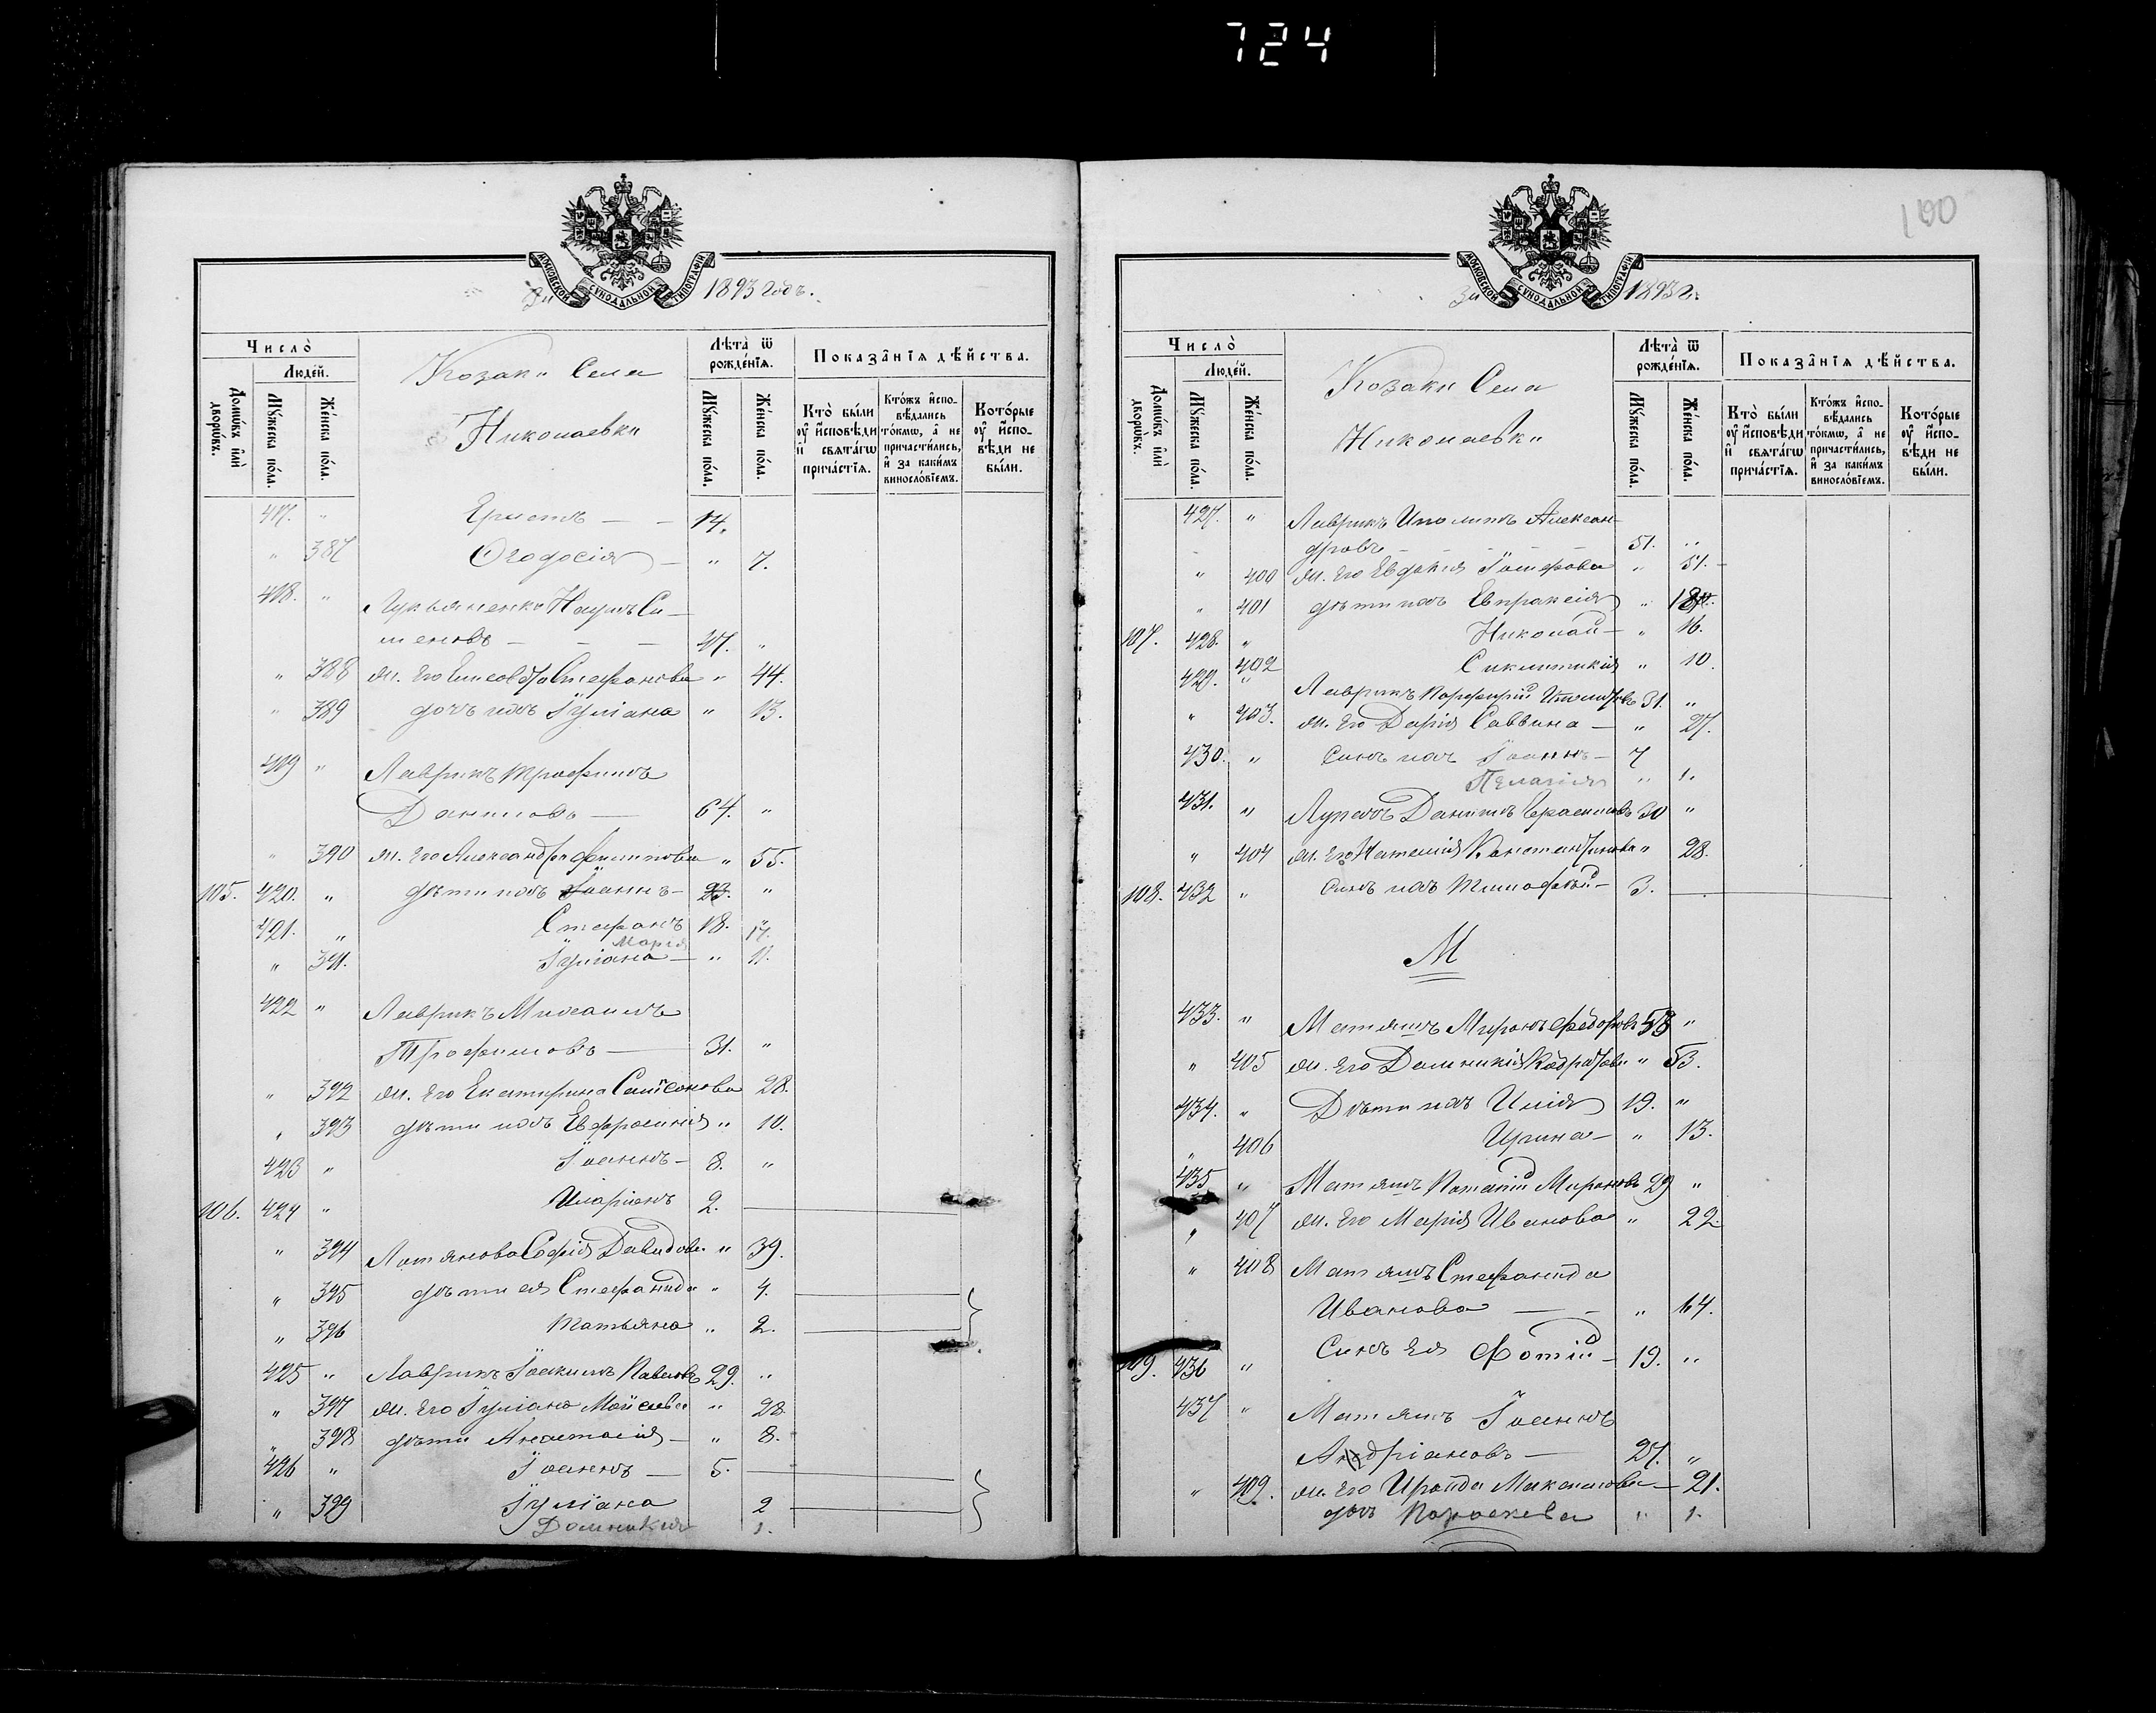 724
МОСКОВСКОЙ СѴНОДАЛЬНОЙ ТИПОГРАФІИ
За 1893 годъ.
Число̀
Людей.
Домѡ́въ и҆лѝ дворѡ́въ.
Мꙋ́жеска по́ла.
Же́нска по́ла.
Козаки Села
Николаевки
Лѣ́та ѿ рожде́нїѧ.
Мꙋ́жеска по́ла.
Же́нска по́ла.
Показа̑нїѧ дѣ́йства.
Кто̀ бы́ли оу҆ и҆сповѣди и҆ свѧта́гѡ прича́стїѧ.
Кто́жъ и҆спо-вѣдались то́кмѡ, а҆ не причасти́лись, и҆ за каки́мъ винослόвїемъ.
Кото́рые оу҆ и҆спо-вѣди не бы́ли.
417. " - - 14.
" 387 Ѳеодосія - " 7.
418. " Лукьяненко Наумъ Си-
меновъ - - - 47. "
" 388 ж. его Елисавета Стефанова " 44.
" 389 дочь ихъ Іуліана " 13.
419 " Лаврикъ Трофимъ
Даниловъ - 64. "
" 390 ж. его Александра Филиппова " 55.
105. 420. " дѣти ихъ Іоаннъ - 23. "
421. " Стефанъ 18. "
Марія 17.
" 391. Іуліана - " 11.
422 " Лаврикъ Михаилъ
Трофимовъ - 31. "
" 392 ж. его Екатерина Самсонова 28.
" 393 дѣти ихъ Евфросинія " 10.
423 " Іоаннъ - 8. "
106. 424 " Иларіонъ 2.
" 394 Софія Давидова " 39.
" 395 дѣти ея Стефанида " 4.
" 396 Татьяна " 2.
425 " Лаврикъ Іоакимъ Павловъ 29. "
" 397 ж. его Іуліана Моисеева " 28.
" 398 дѣти Анастасія - " 8.
426 " Іоаннъ - 5.
" 399 Іуліана 2
Домникія 1.
100
МОСКОВСКОЙ СѴНОДАЛЬНОЙ ТИПОГРАФІИ
За 1893 г.
Число̀
Людей.
Домѡ́въ и҆лѝ дворѡ́въ.
Мꙋ́жеска по́ла.
Же́нска по́ла.
Козаки Села
Николаевки
Лѣ́та ѿ рожде́нїѧ.
Мꙋ́жеска по́ла.
Же́нска по́ла.
Показа̑нїѧ дѣ́йства.
Кто̀ бы́ли оу҆ и҆сповѣди и҆ свѧта́гѡ прича́стїѧ.
Кто́жъ и҆спо-вѣдались то́кмѡ, а҆ не причасти́лись, и҆ за каки́мъ винослόвїемъ.
Кото́рые оу҆ и҆спо-вѣди не бы́ли.
427. " Лаврикъ Иполитъ Алексан-
дровъ - - - - 51. "
" 400 ж. его Евдокія Іосифова " 51.
" 401 дѣти ихъ Евпраксія "
107. 428. " Николай - " 16.
402 Сиклитикія " 10.
429. " Лаврикъ Порфирій Иполитовъ 31. "
" 403. ж. его Дарія Саввина - " 27.
430. " Сынъ ихъ Іоаннъ - 7
Пелагія " 1.
431. " Данилъ Герасимовъ 30 "
" 404 ж. его Наталія Константинова " 28.
108. 432 " Сынъ ихъ Тимофей - 3.
М
433. " Матяшъ Миронъ Федоровъ 58 "
" 405 ж. его Домникія Кодратова " 53.
434. " Дѣти ихъ Илія 19. "
" 406 Ирина - " 13.
435 " Матяшъ Потапій Мироновъ 29 "
" 407 ж. его Марія Иванова " 22.
" 408 Матяшъ Стефанида
Иванова - - " 64.
109. 436 " Сынъ ея Фотій - 19. "
437 " Матяшъ Іоаннъ
Андріановъ - 27. "
" 409. ж. его Ираида Максимова - 21.
дочь Параскева " 1.